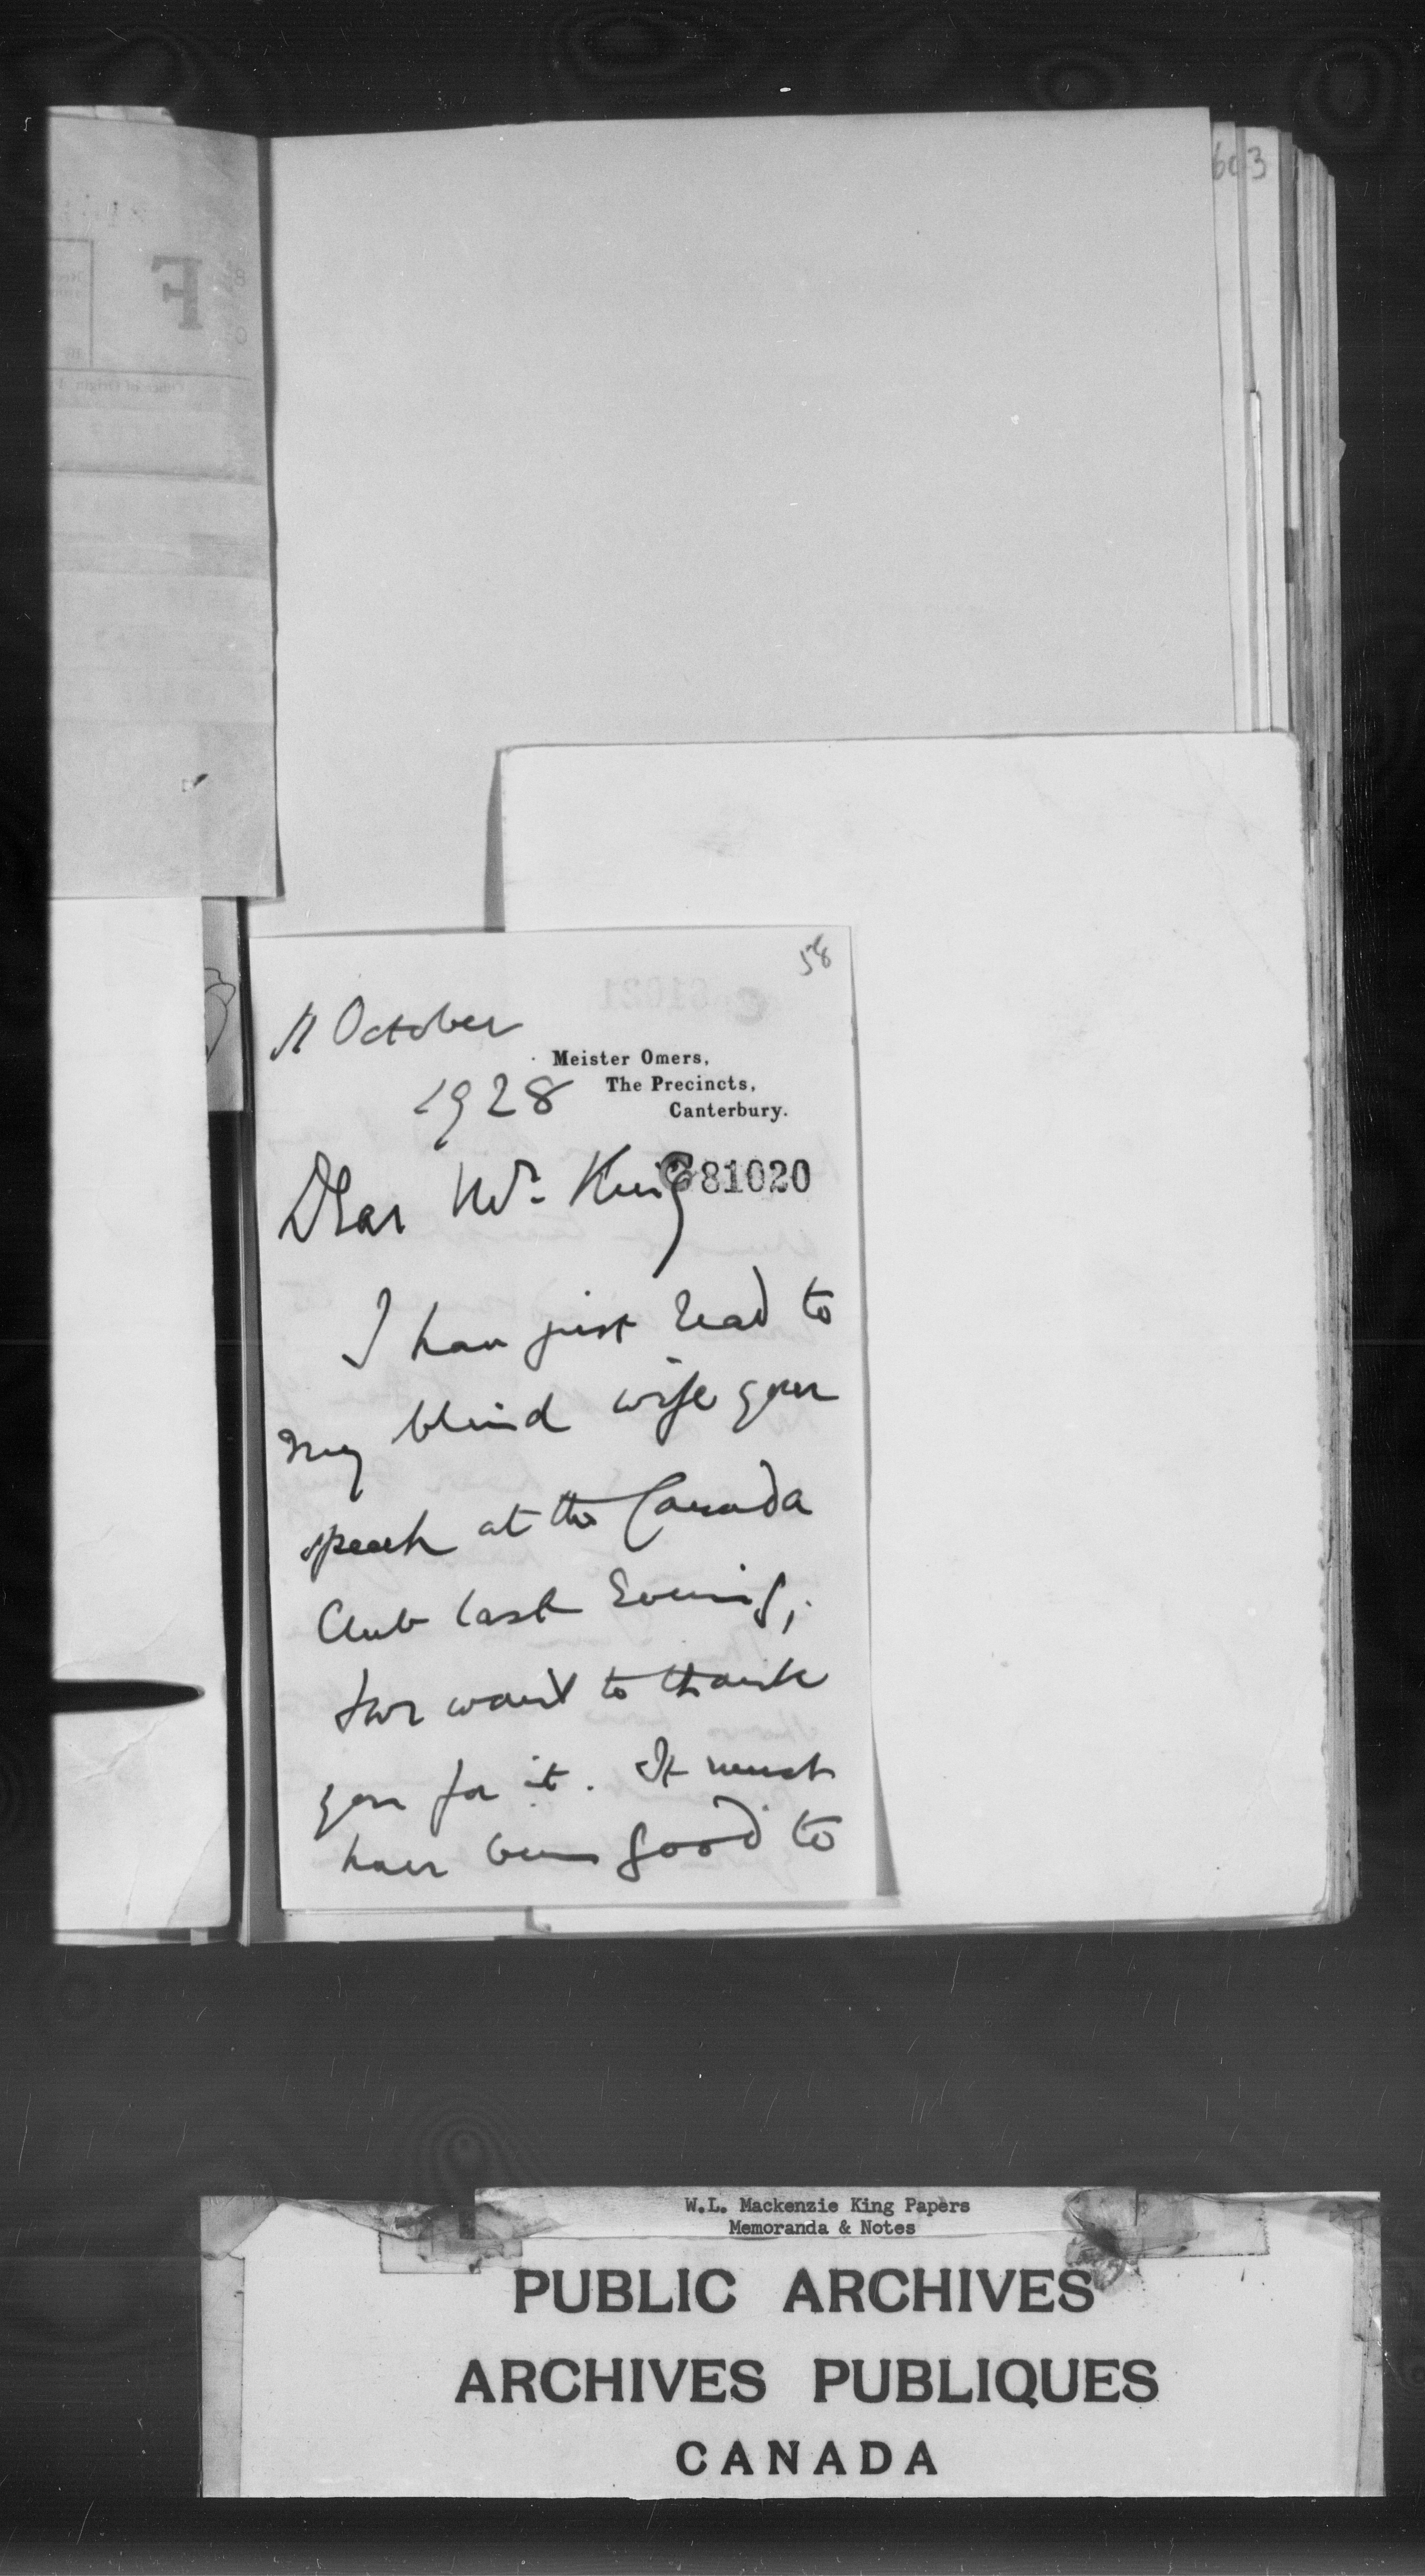 603
F
58
11 October
1928
Meister Omers,
The Precincts,
Canterbury.
Dear Mr. King
C81020
I have just read to
my blind wife your
speech at the Canada
Club last Evening,
& we want to thank
you for it. It must
have been good to
W.L. Mackenzie King Papers
Memoranda & Notes
PUBLIC ARCHIVES
ARCHIVES PUBLIQUES
CANADA